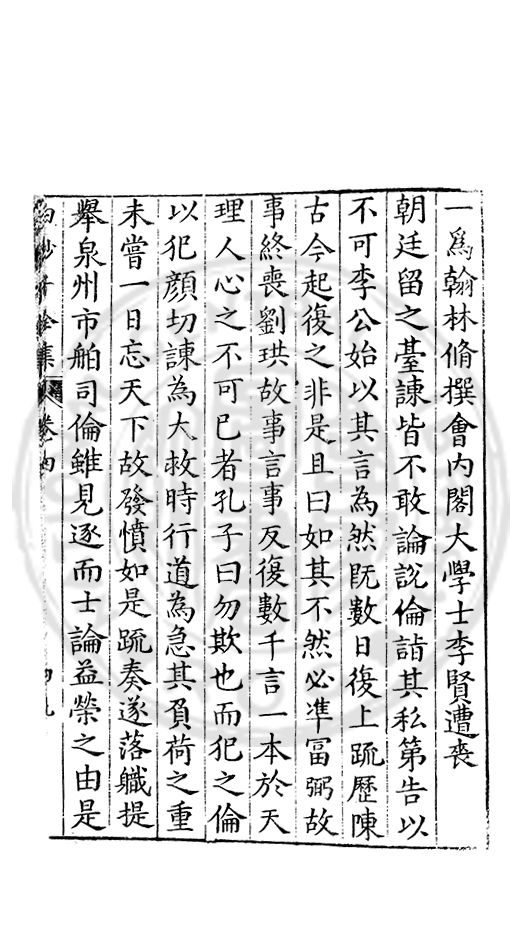 一為翰林脩撰會內閣大學士李賢遭喪
朝廷留之臺諫皆不敢論說倫詣其私第告以
不可李公始以其言為然既數日復上疏歷陳
古今起復之非是且曰如其不然必準富弼故
事終喪劉珙故事言事反復數千言一本於天
理人心之不可已者孔子曰勿欺也而犯之倫
以犯顏切諫為大救時行道為急其負荷之重
未嘗一日忘天下故發憤如是疏奏遂落職提
舉泉州市舶司倫雖見逐而士論益榮之由是
白沙子全集 卷四